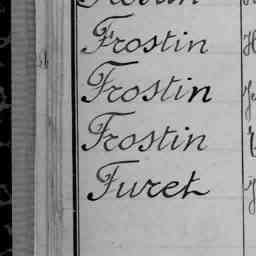 Frostin
Frostin
Frostin
Furet